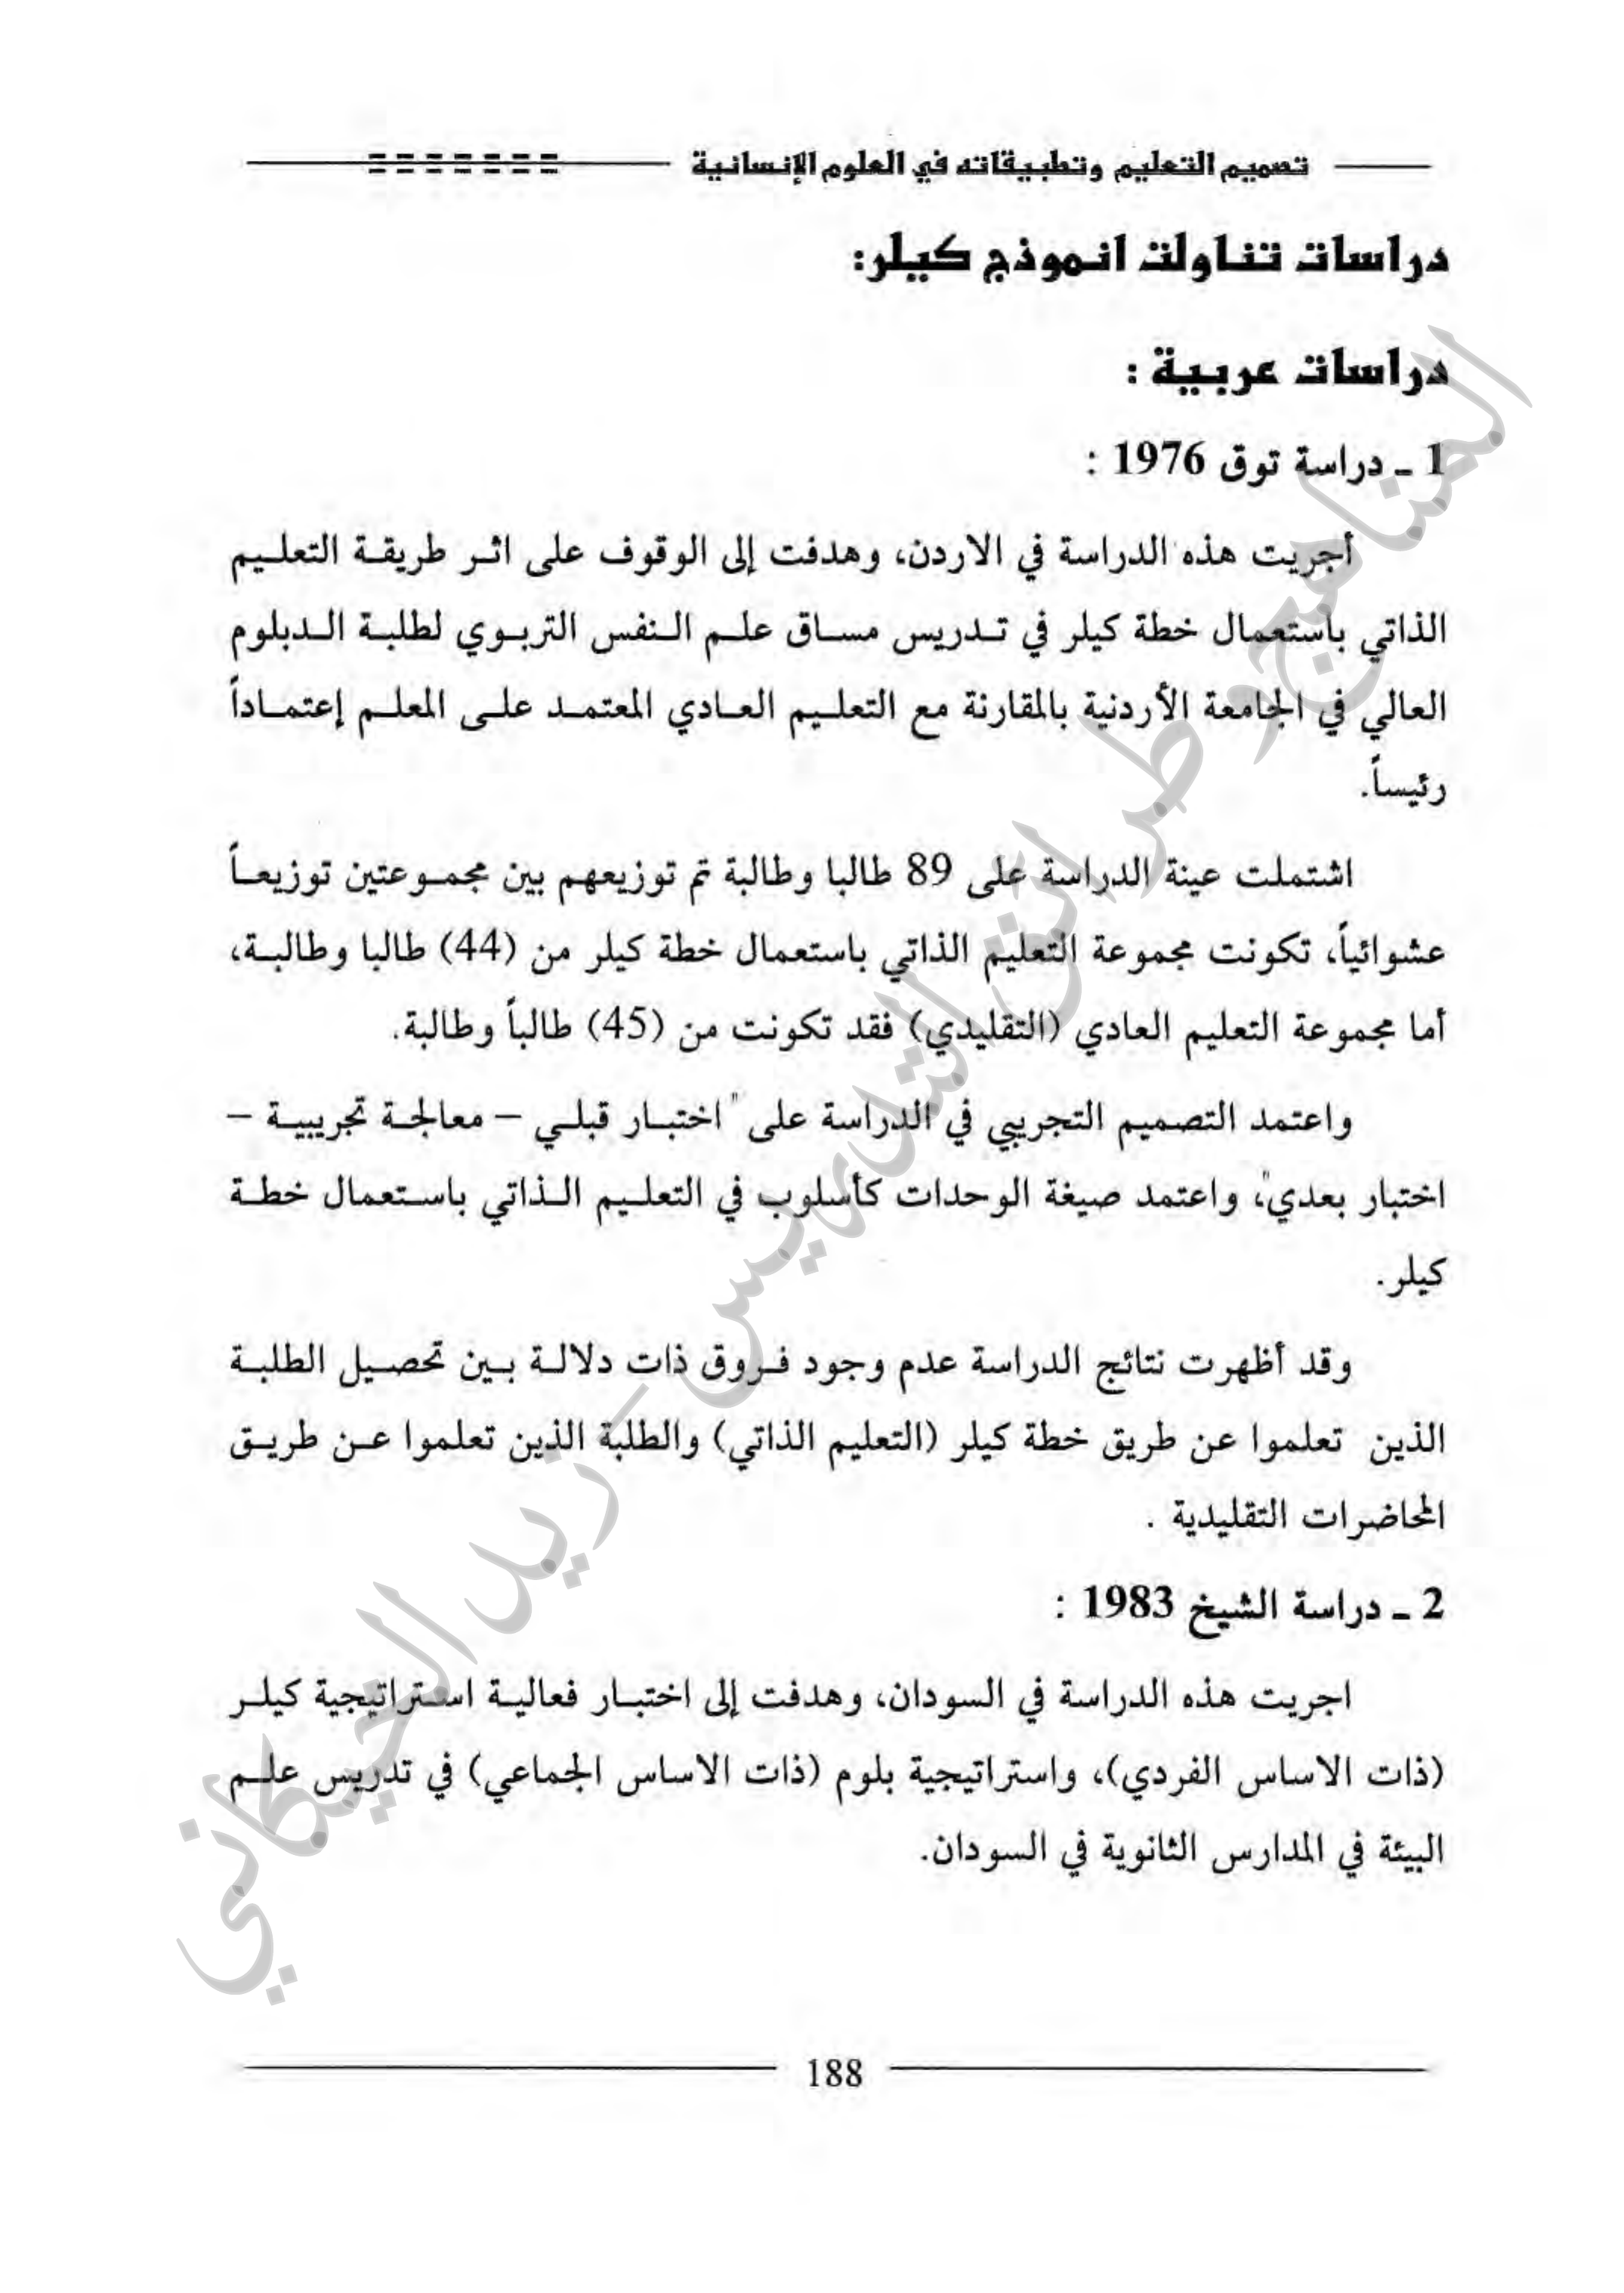 تصميم التعليم وتطبيقاته في العلوم الإنسانية
دراسات تناولت انموذج كيلر:
دراسات عربية :
1 ـ دراسة توق 1976 :
أجريت هذه الدراسة في الاردن، وهدفت إلى الوقوف على اثر طريقة التعليم
الذاتي باستعمال خطة كيلر في تدريس مساق علم النفس التربوي لطلبة الدبلوم
العالي في الجامعة الأردنية بالمقارنة مع التعليم العادي المعتمد على المعلم إعتماداً
رئيساً.
اشتملت عينة الدراسة على 89 طالبا وطالبة تم توزيعهم بين مجموعتين توزيعاً
عشوائياً، تكونت مجموعة التعليم الذاتي باستعمال خطة كيلر من (44) طالبا وطالبة،
أما مجموعة التعليم العادي (التقليدي) فقد تكونت من (45) طالباً وطالبة.
واعتمد التصميم التجريبي في الدراسة على " اختبار قبلي – معالجة تجريبية –
اختبار بعدي"، واعتمد صيغة الوحدات كأسلوب في التعليم الذاتي باستعمال خطة
كيلر.
وقد أظهرت نتائج الدراسة عدم وجود فروق ذات دلالة بين تحصيل الطلبة
الذين تعلموا عن طريق خطة كيلر (التعليم الذاتي) والطلبة الذين تعلموا عن طريق
المحاضرات التقليدية .
2 ـ دراسة الشيخ 1983 :
اجريت هذه الدراسة في السودان، وهدفت إلى اختبار فعالية استراتيجية كيلر
(ذات الاساس الفردي)، واستراتيجية بلوم (ذات الاساس الجماعي) في تدريس علم
البيئة في المدارس الثانوية في السودان.
188
المناهج وطرائق التدريس – زيد الخيكاني